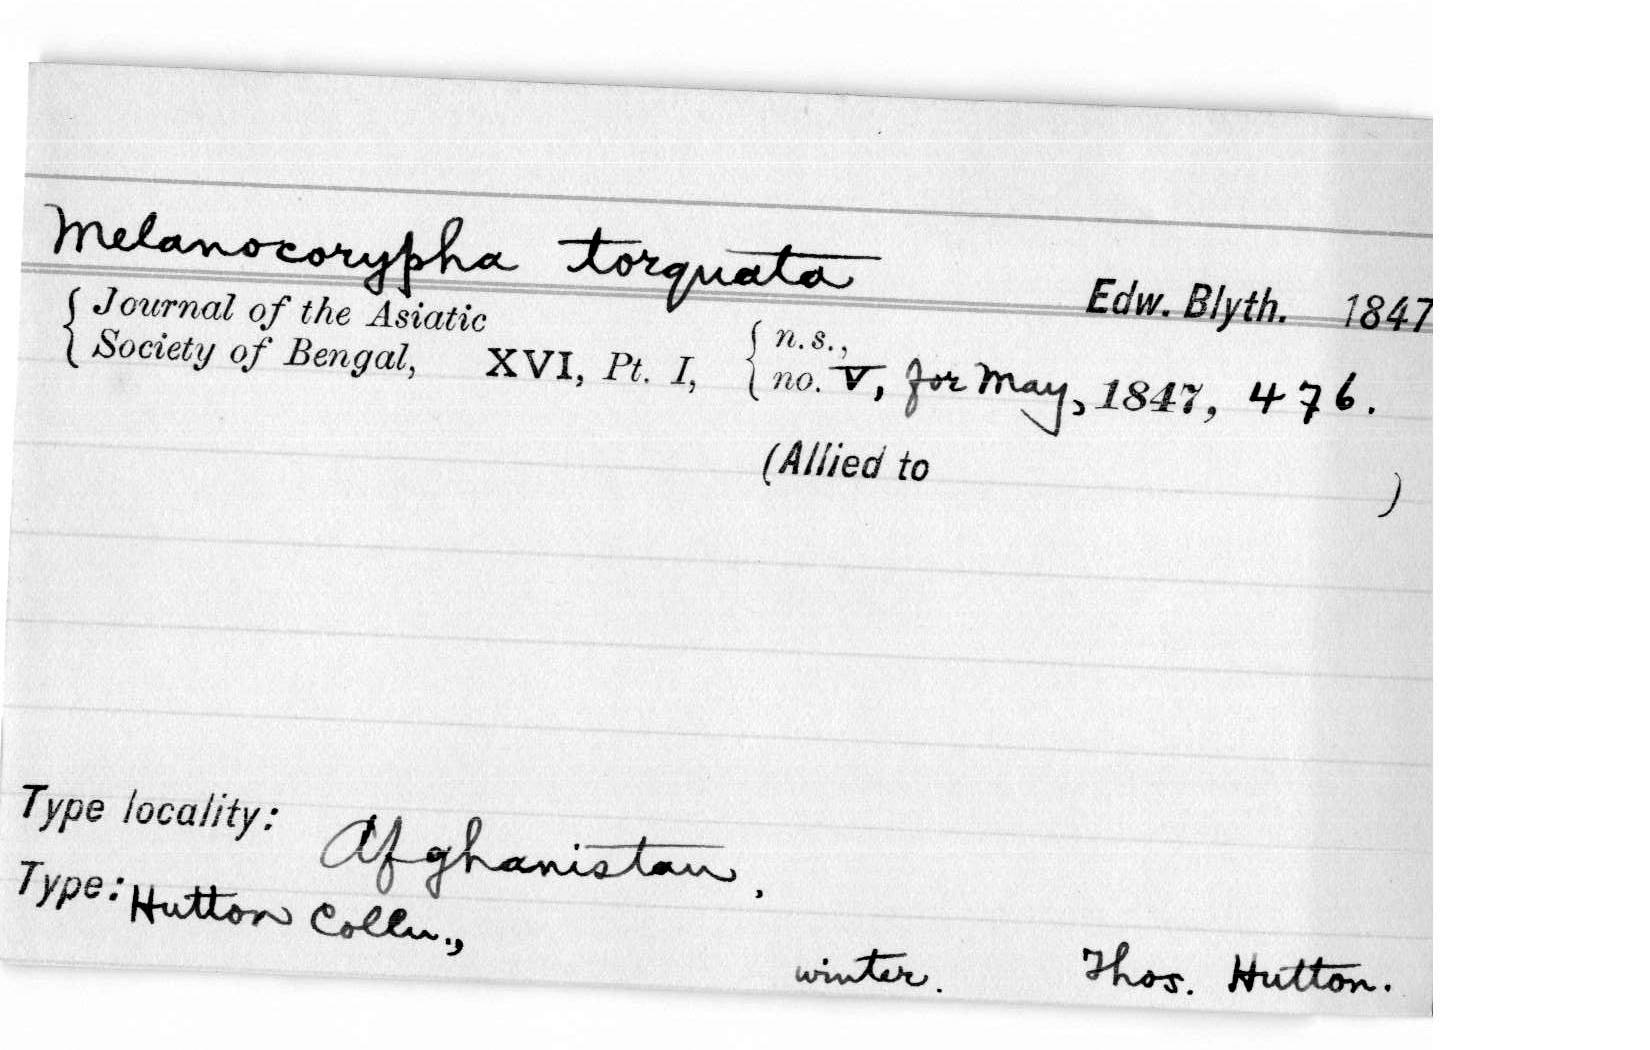 Melanocorypha torquata Edw. Blyth. 1847
{ Journal of the Asiatic
{ Society of Bengal, XVI, Pt. I, { n.s.,
{ no. V, for May, 1847, 476.
(Allied to )
Type locality: Afghanistan,
Type: Hutton Colln.,
winter. Thos. Hutton.